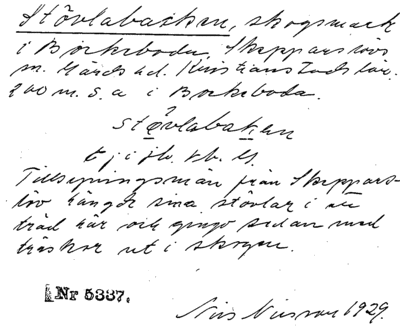 Stövlabacken, skogsmark
i Bockeboda, Skepparslövs
sn. Gärds hd. Kristianstads län.
200 m. S. a i Bockeboda.
stövlabaken
Tillsyningsmän från Skeppars-
löv hängde sina stövlar i ett
träd här och gingo sedan med
träskor ut i skogen.
Nr 5337.
Nils Nilsson 1929.